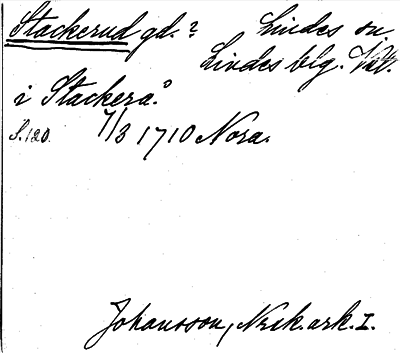 Stackerud gd.? Lindes sn
Lindes blg. Vstm.
i Stackerå.
S. 120. 7/3 1710 Nora.
Johansson, Nerk. ark. I.